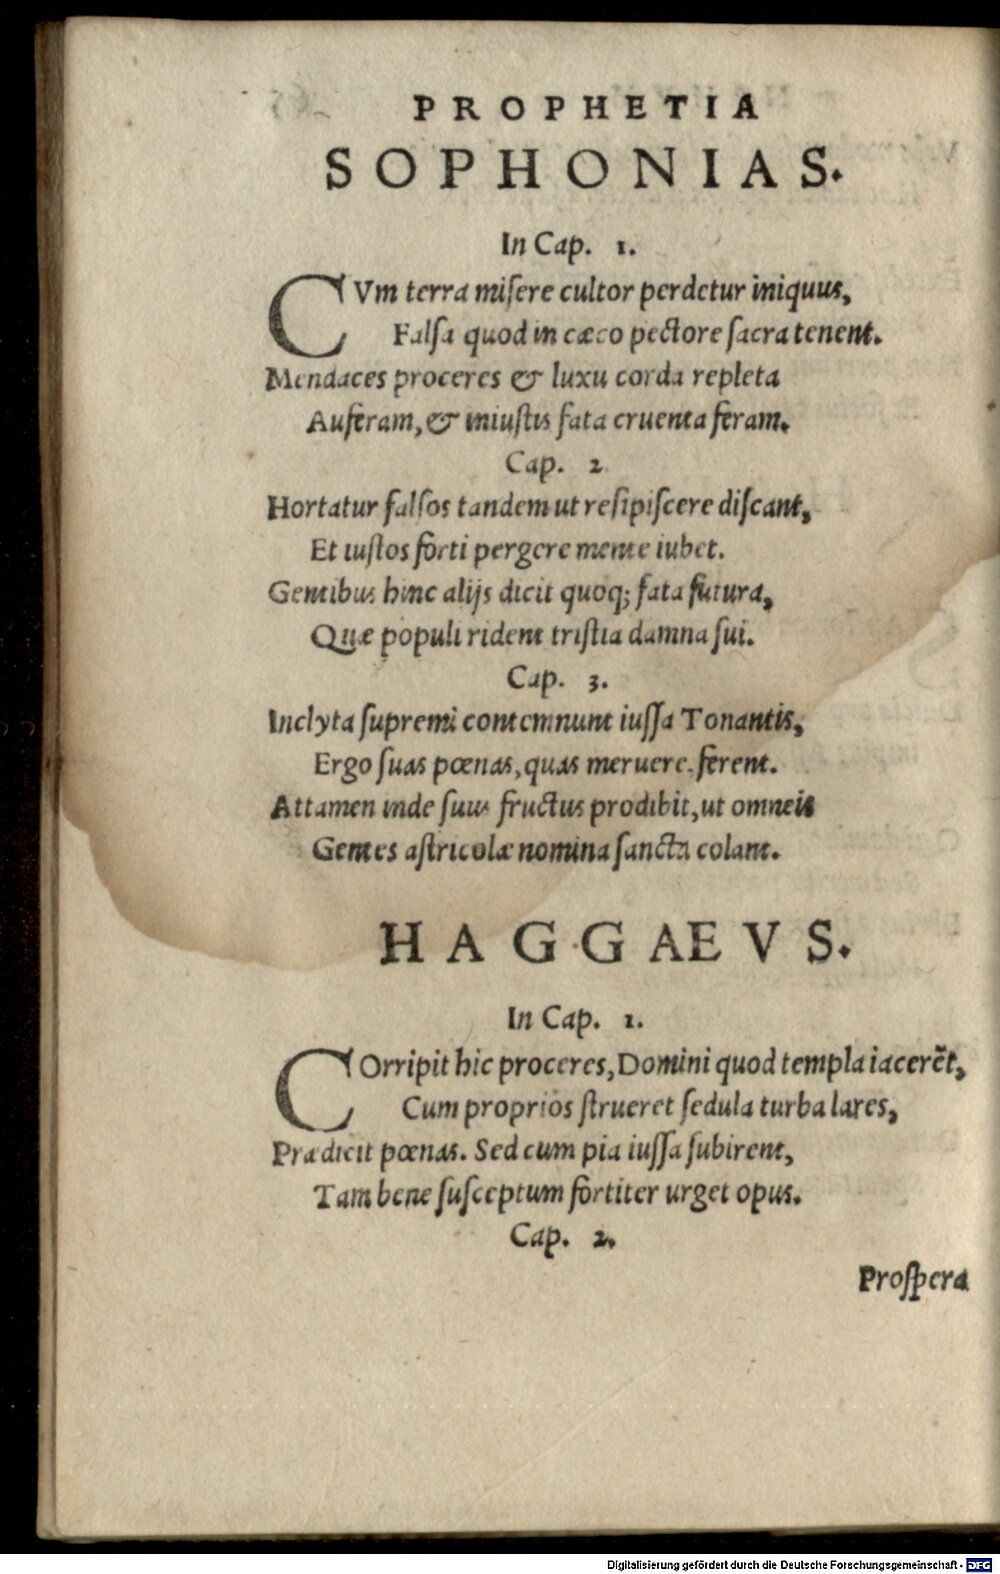 PROPHETIA
SOPHONIAS.
In Cap. 1.
CVm terra misere cultor perdetur iniquus,
Falsa quod in cæco pectore sacra tenent.
Mendaces proceres & luxu corda repleta
Auferam, & iniustis fata cruenta feram.
Cap. 2
Hortatur falsos tandem ut resipiscere discant,
Et iustos forti pergere mente iubet.
Gentibus hinc alijs dicit quoq; fata futura,
Quæ populi rident tristia damna sui.
Cap. 3.
Inclyta supremi contemnunt iussa Tonantis,
Ergo suas pœnas, quas meruere, ferent.
Attamen inde suus fructus prodibit, ut omneis
Gentes astricolæ nomina sancta colant.
HAGGAEVS.
In Cap. 1.
COrripit hic proceres, Domini quod templa iacerẽt,
Cum proprios strueret sedula turba lares,
Prædicit pœnas. Sed cum pia iussa subirent,
Tam bene susceptum fortiter urget opus.
Cap. 2.
Prospera
Digitalisierung gefördert durch die Deutsche Forschungsgemeinschaft - DFG